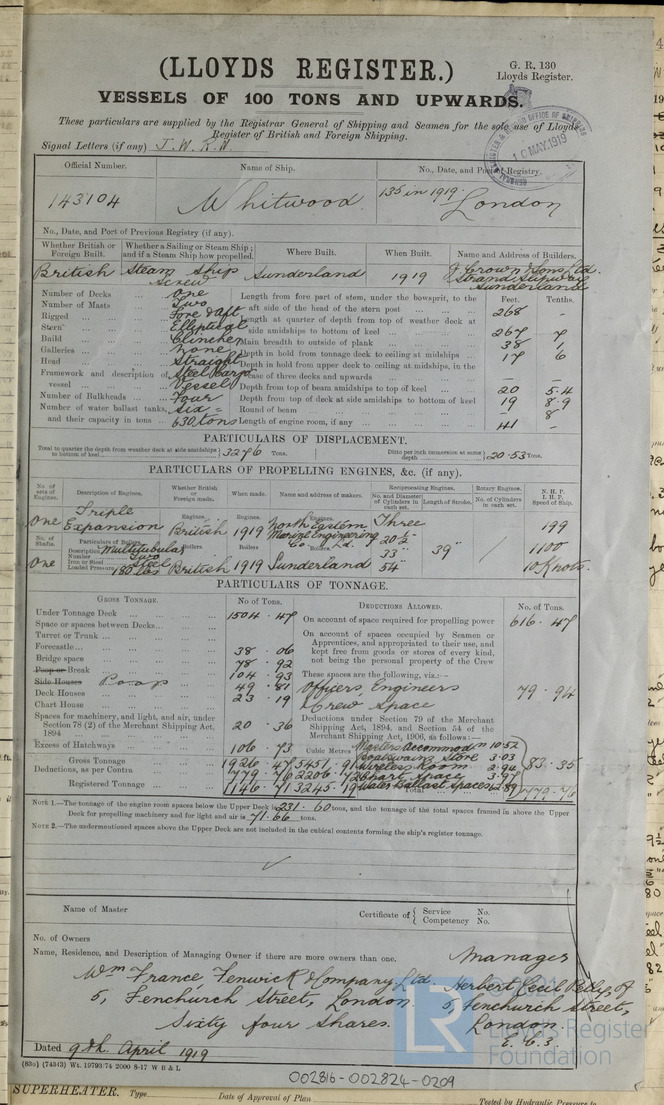 (LLOYDS REGISTER.)
G. R. 130
Lloyds Register.
VESSELS OF 100 TONS AND UPWARDS.
These particulars are supplied by the Registrar General of Shipping and Seamen for the sole use of Lloyds
Register of British and Foreign Shipping.
16 MAY. 1919
Signal Letters (if any) J. W. K. W.
Official Number. Name of Ship. No., Date, and Port of Registry.
143104 Whitwood. 135 in 1919 London
No., Date, and Port of Previous Registry (if any).
Whether British or Foreign Built. Whether a Sailing or Steam Ship; and if a Steam Ship how propelled. Where Built. When Built. Name and Address of Builders.
British Steam Ship Screw Sunderland 1919 J. Crown & Sons, Ltd. Strand Slipway Sunderland
Number of Decks One
Number of Masts Two
Rigged Fore & Aft
Stern Elliptical
Build Clincher
Galleries None
Head Straight
Framework and description of vessel Steel
Vessel
Number of Bulkheads Four
Number of water ballast tanks, and their capacity in tons Six = 630 tons
Feet. Tenths.
Length from fore part of stem, under the bowsprit, to the aft side of the head of the stern post 268 -
Length at quarter of depth from top of weather deck at side amidships to bottom of keel 267 7
Main breadth to outside of plank 38 1
Depth in hold from tonnage deck to ceiling at midships 17 6
Depth in hold from upper deck to ceiling at midships, in the case of three decks and upwards — —
Depth from top of beam amidships to top of keel 20 5.4
Depth from top of deck at side amidships to bottom of keel 19 8.9
Round of beam - 8
Length of engine room, if any 41 -
PARTICULARS OF DISPLACEMENT.
Total to quarter the depth from weather deck at side amidships to bottom of keel 3276 Tons. Ditto per inch immersion at same depth 20.53 Tons.
PARTICULARS OF PROPELLING ENGINES, &c. (if any).
No. of sets of Engines. Description of Engines. Whether British or Foreign made. When made. Name and address of makers. Reciprocating Engines. Rotary Engines. N. H. P. I. H. P. Speed of Ship.
No. and Diameter of Cylinders in each set. Length of Stroke. No. of Cylinders in each set.
One Triple Expansion Engines. British Engines. 1919 Engines. North Eastern Marine Engineering Co Ltd. Three 20½" 33" 54" 39" / 199
1100
10 Knots.
No. of Shafts. Particulars of Boilers.
Description Multitubular
Number Two
Iron or Steel Steel
Loaded Pressure 180 lbs
One Boilers. British Boilers 1919 Boilers. Sunderland
PARTICULARS OF TONNAGE.
GROSS TONNAGE. No. of Tons. DEDUCTIONS ALLOWED. No. of Tons.
Under Tonnage Deck 1504 . 47
Space or spaces between Decks
Turret or Trunk
Forecastle 38 . 06
Bridge space 78 . 92
Poop or Break 104 . 93
Side Houses Poop
Deck Houses 49 . 81
Chart House 23 . 19
Spaces for machinery, and light, and air, under Section 78 (2) of the Merchant Shipping Act, 1894 20 . 36
Excess of Hatchways 106 . 73
Cubic Metres
Gross Tonnage 1926 . 47 5451 . 91
Deductions, as per Contra 779 . 76 2206 . 72
Registered Tonnage 1146 . 71 3245 . 19
On account of space required for propelling power 616 . 47
On account of spaces occupied by Seamen or Apprentices, and appropriated to their use, and kept free from goods or stores of every kind, not being the personal property of the Crew
These spaces are the following, viz.:—
Officers, Engineers & Crew Space 79 . 94
Deductions under Section 79 of the Merchant Shipping Act, 1894, and Section 54 of the Merchant Shipping Act, 1906, as follows:—
Masters accommodn 10.52
Boatswains Store 3.03
Wireless Room 2.94
Chart Space 3.97
Water Ballast Spaces 12.89
83 . 35
Total 779 . 76
NOTE 1.—The tonnage of the engine room spaces below the Upper Deck is 231 . 60 tons, and the tonnage of the total spaces framed in above the Upper
Deck for propelling machinery and for light and air is 71.66 tons.
NOTE 2.—The undermentioned spaces above the Upper Deck are not included in the cubical contents forming the ship's register tonnage.
Name of Master Certificate of Service No. Competency No.
No. of Owners
Name, Residence, and Description of Managing Owner if there are more owners than one.
Wm France, Fenwick & Company, Ltd.
5, Fenchurch Street, London.
Sixty four Shares.
Manager
Herbert Cecil of
5, Fenchurch Street,
London.
E. C. 3.
Dated 9th. April 1919
Lloyd's Register
Foundation
(83o) (74343) Wt. 19793/74 2000 8-17 W B & L
002816-002824-0209
SUPERHEATER. Type Date of Approval of Plan Tested by Hydraulic Pressure to